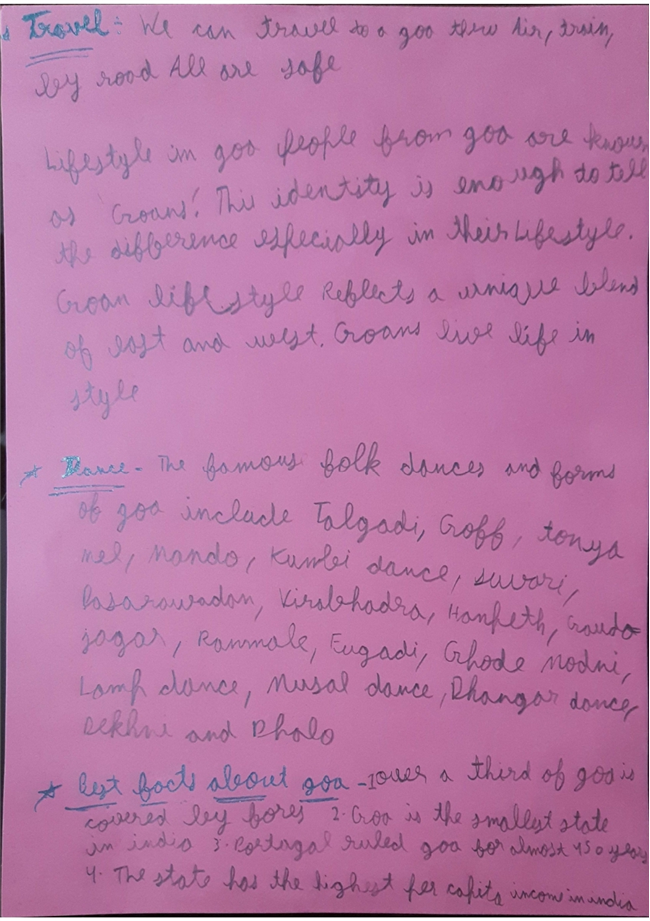 Travel:- We can travel to a goa thru Air, train,
by road All are safe
Lifestyle in goa People from goa are known
as 'Goans'. This identity is enough to tell
the difference especially in their Lifestyle.
Goan lifestyle Reflects a unique blend
of east and west. Goans live life in
style
* Dance - The famous folk dances and forms
of goa include Talgadi, Goff, tonya
mel, Mando, Kunbi dance, suvari,
Dasarawadan, Virabhadra, Hanpeth, Gauda
jagar, Ranmale, Fugadi, Ghode Modni,
Lamp dance, Musal dance, Dhangar dance,
Dekhni and Dhalo
* Best facts about goa - 1 over a third of goa is
covered by fores 2. Goa is the smallest state
in india 3. Portugal ruled goa for almost 450 years
4. The state has the highest per capita income in india